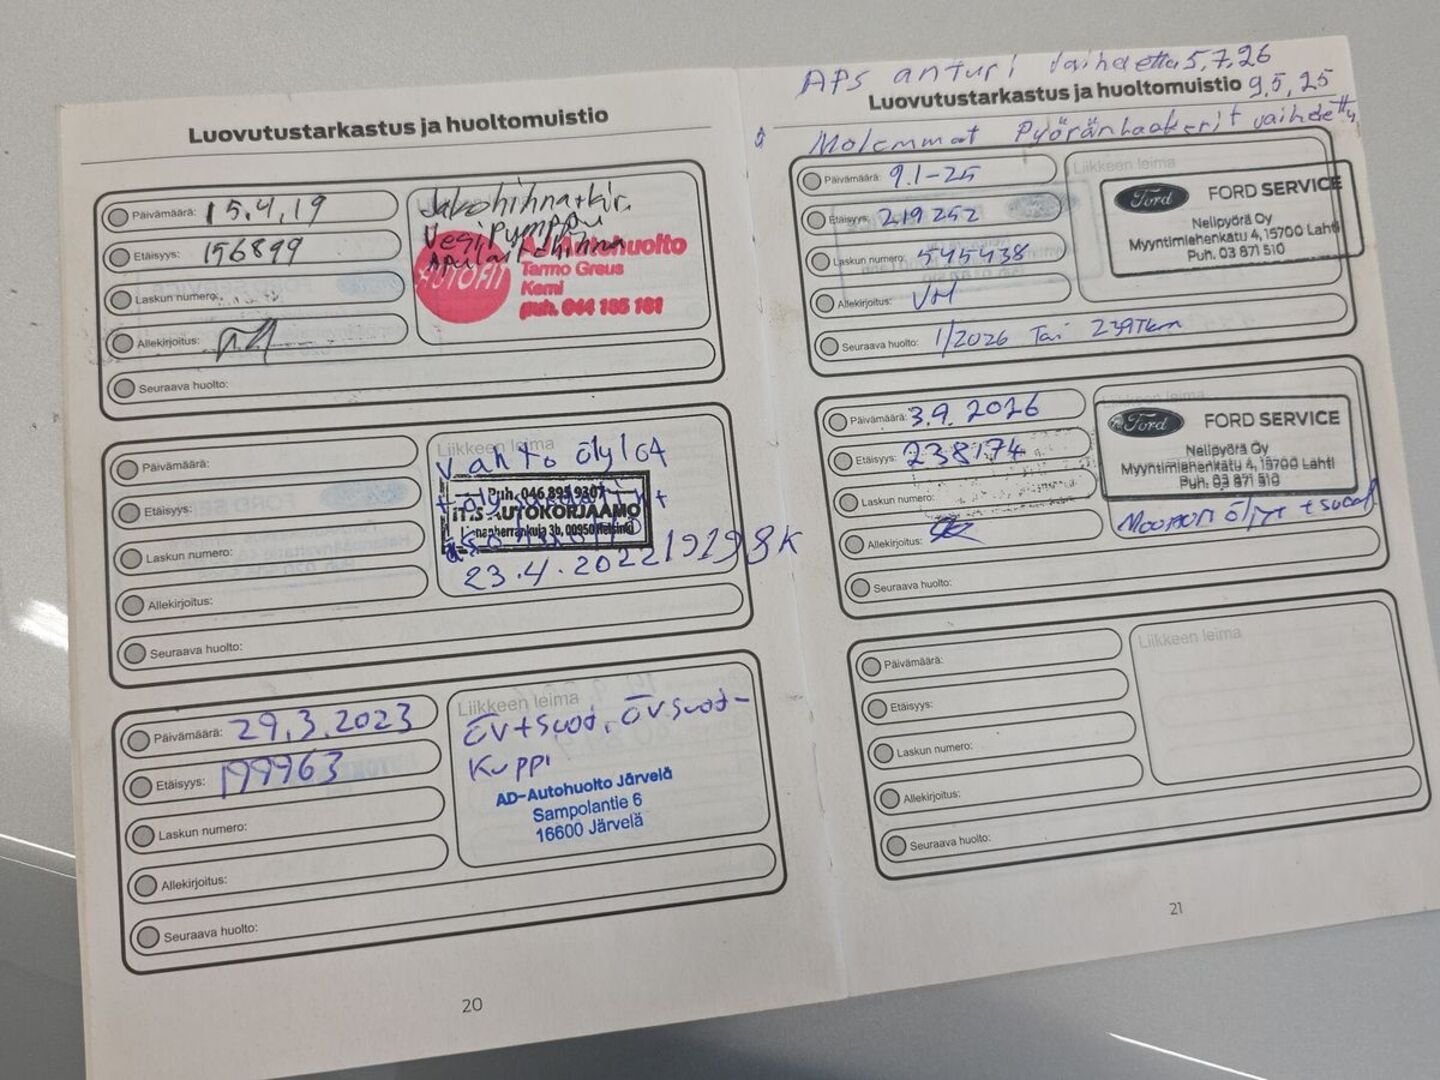 Luovutustarkastus ja huoltomuistio
Päivämäärä: 15.4.19
Etäisyys: 156899
Laskun numero:
Allekirjoitus:
Seuraava huolto:
Jakohihna+kir.
Vesipumppu
Apulaitehihna
AUTOFIT
AJ-Autohuolto
Tarmo Greus
Kemi
puh. 044 185 181
Päivämäärä:
Etäisyys:
Laskun numero:
Allekirjoitus:
Seuraava huolto:
Liikkeen leima
Vaihto öljyt
Puh. 046 895 9307
AUTOKORJAAMO
3b, 00950 Helsinki
23.4.2022 19198K
Päivämäärä: 29.3.2023
Etäisyys: 199963
Laskun numero:
Allekirjoitus:
Seuraava huolto:
Liikkeen leima
öv+suod. öv suod-
Kuppi
AD-Autohuolto Järvelä
Sampolantie 6
16600 Järvelä
20
APS anturi vaihdettu 5.7.26
Luovutustarkastus ja huoltomuistio 9.5.25
Molemmat Pyöränlaakerit vaihdettu
Päivämäärä: 9.1-25
Etäisyys: 219252
Laskun numero: 545438
Allekirjoitus: VM
Seuraava huolto: 1/2026 Tai 239Tkm
Liikkeen leima
Ford FORD SERVICE
Nelipyörä Oy
Myyntimiehenkatu 4, 15700 Lahti
Puh. 03 871 510
Päivämäärä: 3.9.2026
Etäisyys: 238174
Laskun numero:
Allekirjoitus:
Seuraava huolto:
Liikkeen leima
Ford FORD SERVICE
Nelipyörä Oy
Myyntimiehenkatu 4, 15700 Lahti
Puh. 03 871 510
Moottorin öljyt + suod.
Päivämäärä:
Etäisyys:
Laskun numero:
Allekirjoitus:
Seuraava huolto:
Liikkeen leima
21